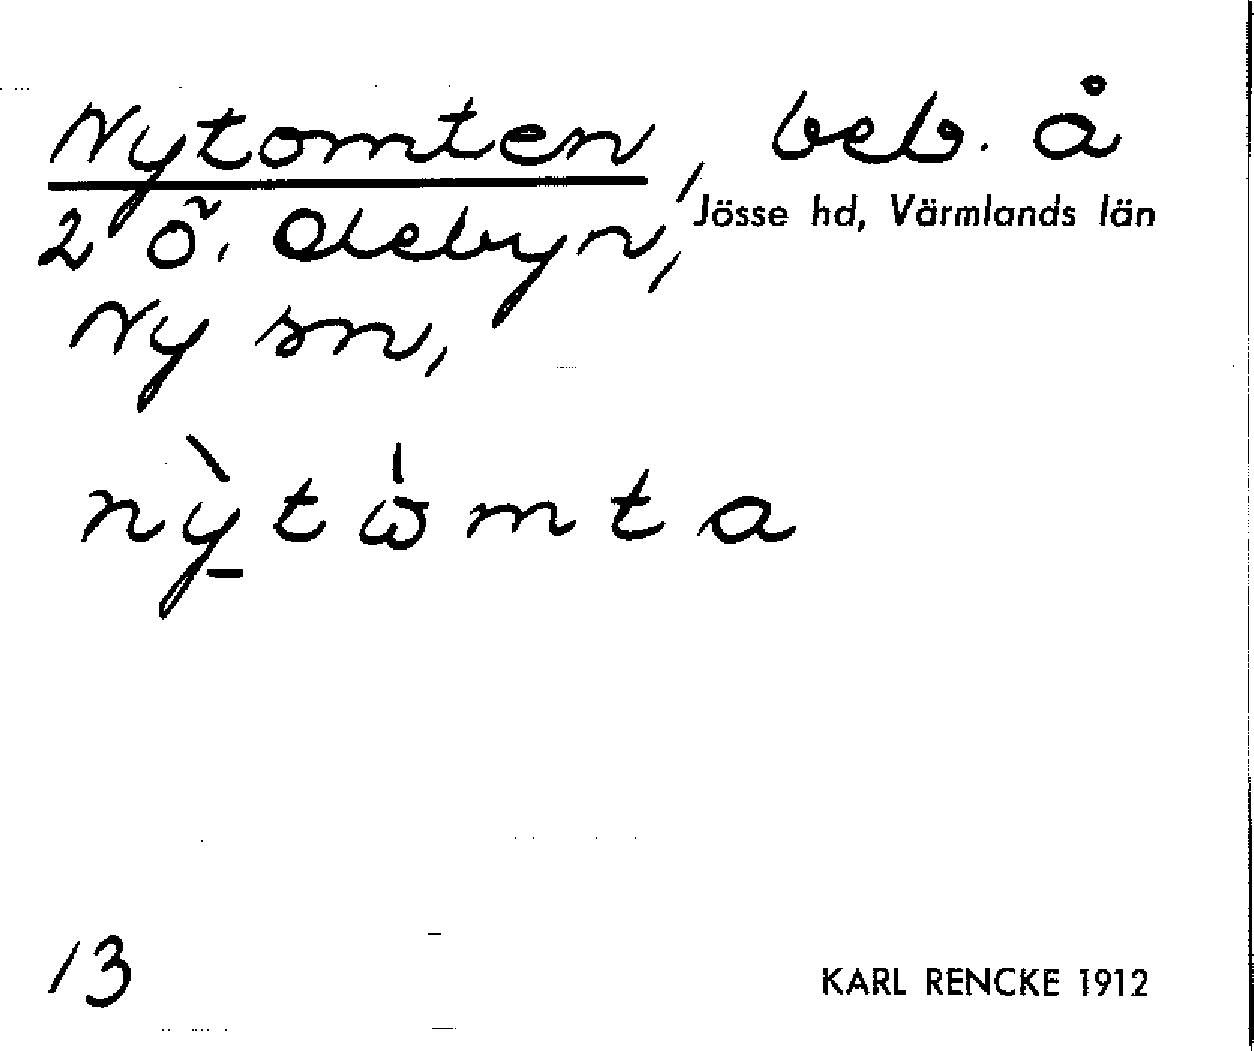 Nytomten, beb. å
2 Õ. Olebyn, Jösse hd, Värmlands län
Ny sn,
nỳtὼmta
13
KARL RENCKE 1912